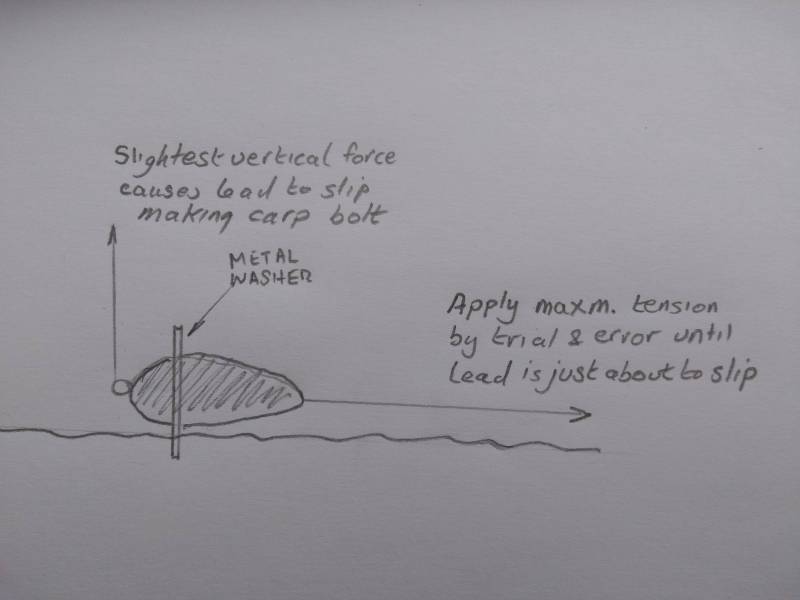 Slightest vertical force
causes lead to slip
making carp bolt
METAL
WASHER
Apply maxm. tension
by trial & error until
Lead is just about to slip